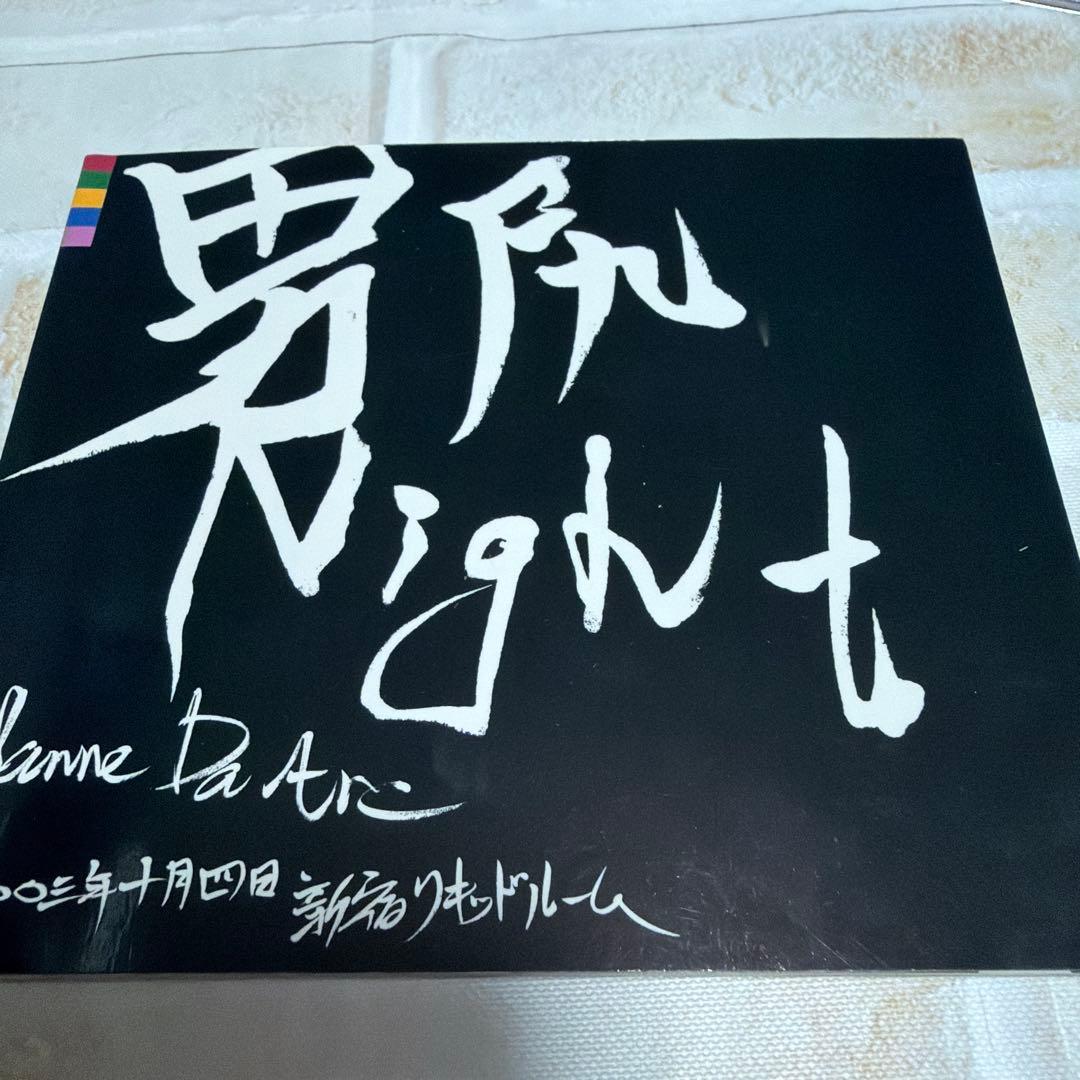 男尻
Night
Janne Da Arc
二〇〇三年十月四日 新宿リキッドルーム